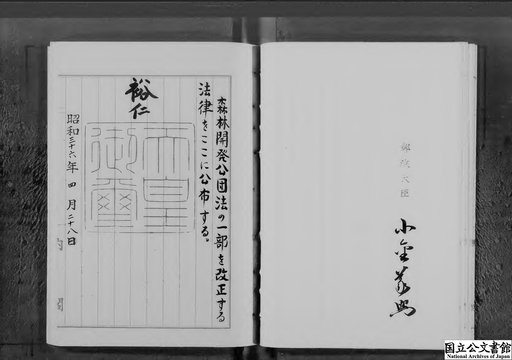 郵政大臣
小金義照
森林開発公団法の一部を改正する
法律をここに公布する。
裕仁
天皇
御璽
昭和三十六年四月二十八日
国立公文書館
National Archives of Japan